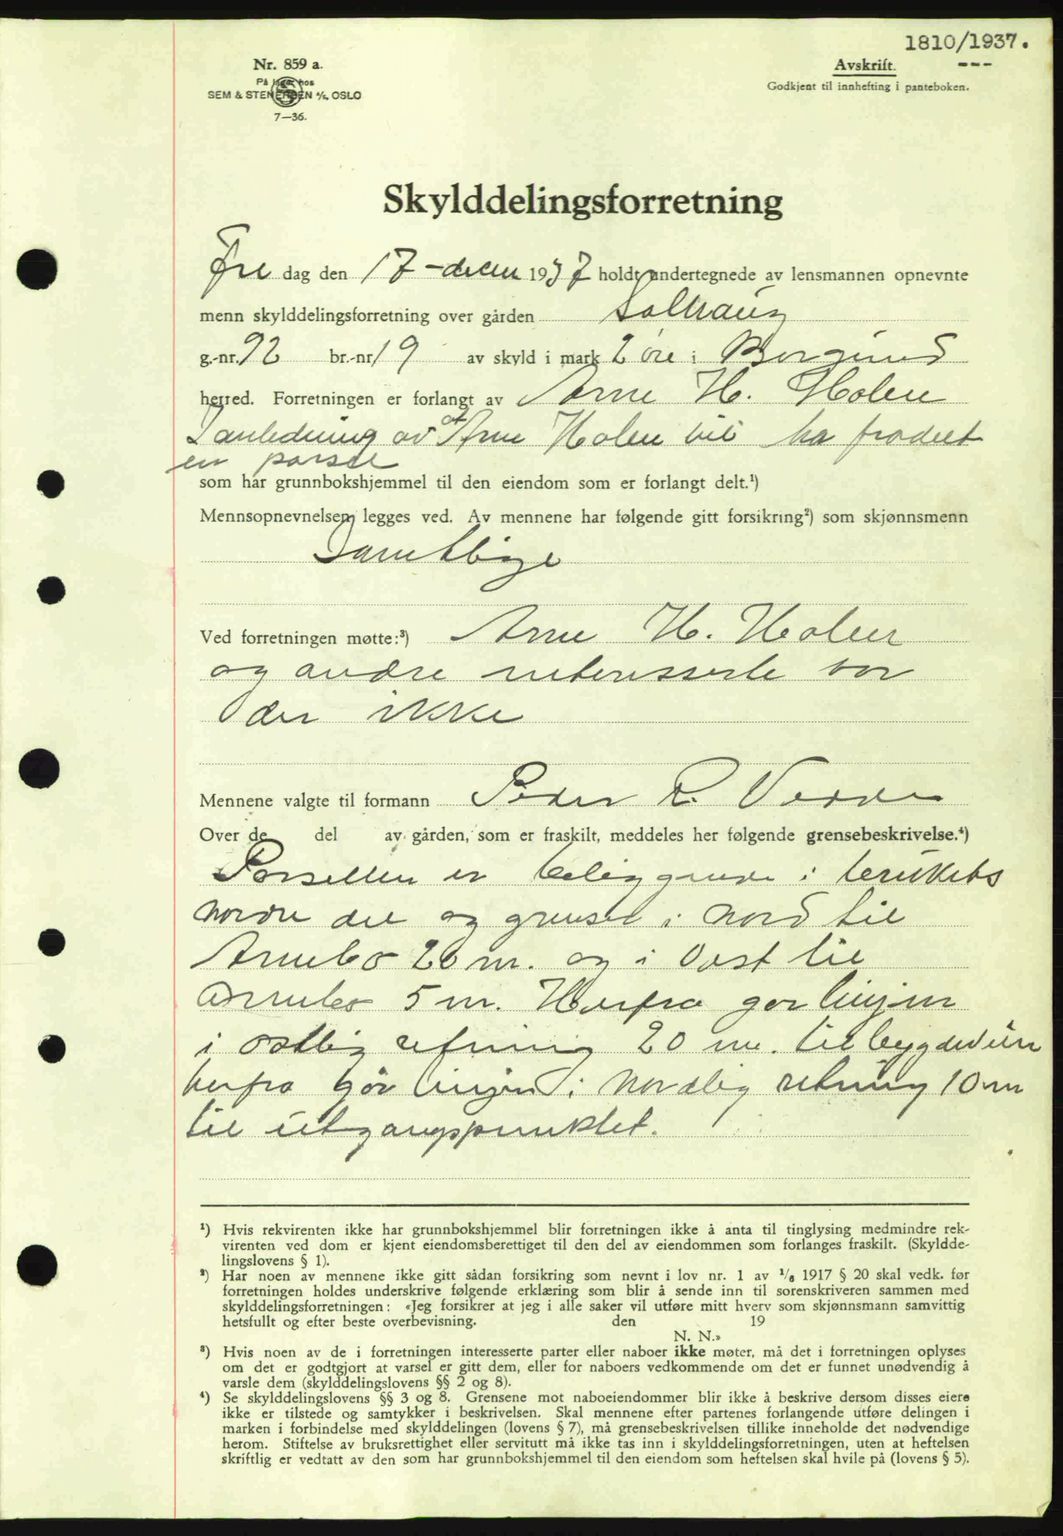 1810/1937.
Nr. 859 a.
På lager hos
SEM & STENERSEN A/S, OSLO
7—36.
Avskrift.
Godkjent til innhefting i panteboken.
Skylddelingsforretning
Fre dag den 17-decem 1937 holdt undertegnede av lensmannen opnevnte
menn skylddelingsforretning over gården Solhaug
g.-nr. 92 br.-nr 19 av skyld i mark 2 øre i Borgund
herred. Forretningen er forlangt av Arne H. Holen
I anledning av at Arne Holen vil ha fradelt
en parsel
som har grunnbokshjemmel til den eiendom som er forlangt delt.¹)
Mennsopnevnelsen legges ved. Av mennene har følgende gitt forsikring²) som skjønnsmenn
Samtlige
Ved forretningen møtte:³) Arne H. Holen
og andre interesserte var
der ikke
Mennene valgte til formann Peder R.
Over de del av gården, som er fraskilt, meddeles her følgende grensebeskrivelse.⁴)
Parsellen er beliggende i brukets
nordre del og grenser i nord til
Arnebo 20 m. og i Vest til
Arnebo 5 m. Herfra går linjen
i østlig retning 20 m. til bygdeveien
herfra går linjen i nordlig retning 10 m
til utgangspunktet.
¹) Hvis rekvirenten ikke har grunnbokshjemmel blir forretningen ikke å anta til tinglysing medmindre rek-
virenten ved dom er kjent eiendomsberettiget til den del av eiendommen som forlanges fraskilt. (Skyldde-
lingslovens § 1).
²) Har noen av mennene ikke gitt sådan forsikring som nevnt i lov nr. 1 av 1/6 1917 § 20 skal vedk. før
forretningen holdes underskrive følgende erklæring som blir å sende inn til sorenskriveren sammen med
skylddelingsforretningen: «Jeg forsikrer at jeg i alle saker vil utføre mitt hverv som skjønnsmann samvittig
hetsfullt og efter beste overbevisning. den 19
N. N.»
³) Hvis noen av de i forretningen interesserte parter eller naboer ikke møter, må det i forretningen oplyses
om det er godtgjort at varsel er gitt dem, eller for naboers vedkommende om det er funnet unødvendig å
varsle dem (skylddelingslovens §§ 2 og 8).
⁴) Se skylddelingslovens §§ 3 og 8. Grensene mot naboeiendommer blir ikke å beskrive dersom disses eiere
ikke er tilstede og samtykker i beskrivelsen. Skal mennene efter partenes forlangende utføre delingen i
marken i forbindelse med skylddelingen (lovens § 7), må grensebeskrivelsen tillike inneholde det nødvendige
herom. Stiftelse av bruksrettighet eller servitutt må ikke tas inn i skylddelingsforretningen, uten at heftelsen
skriftlig er vedtatt av den som har grunnbokshjemmel til den eiendom som heftelsen skal hvile på (lovens § 5).